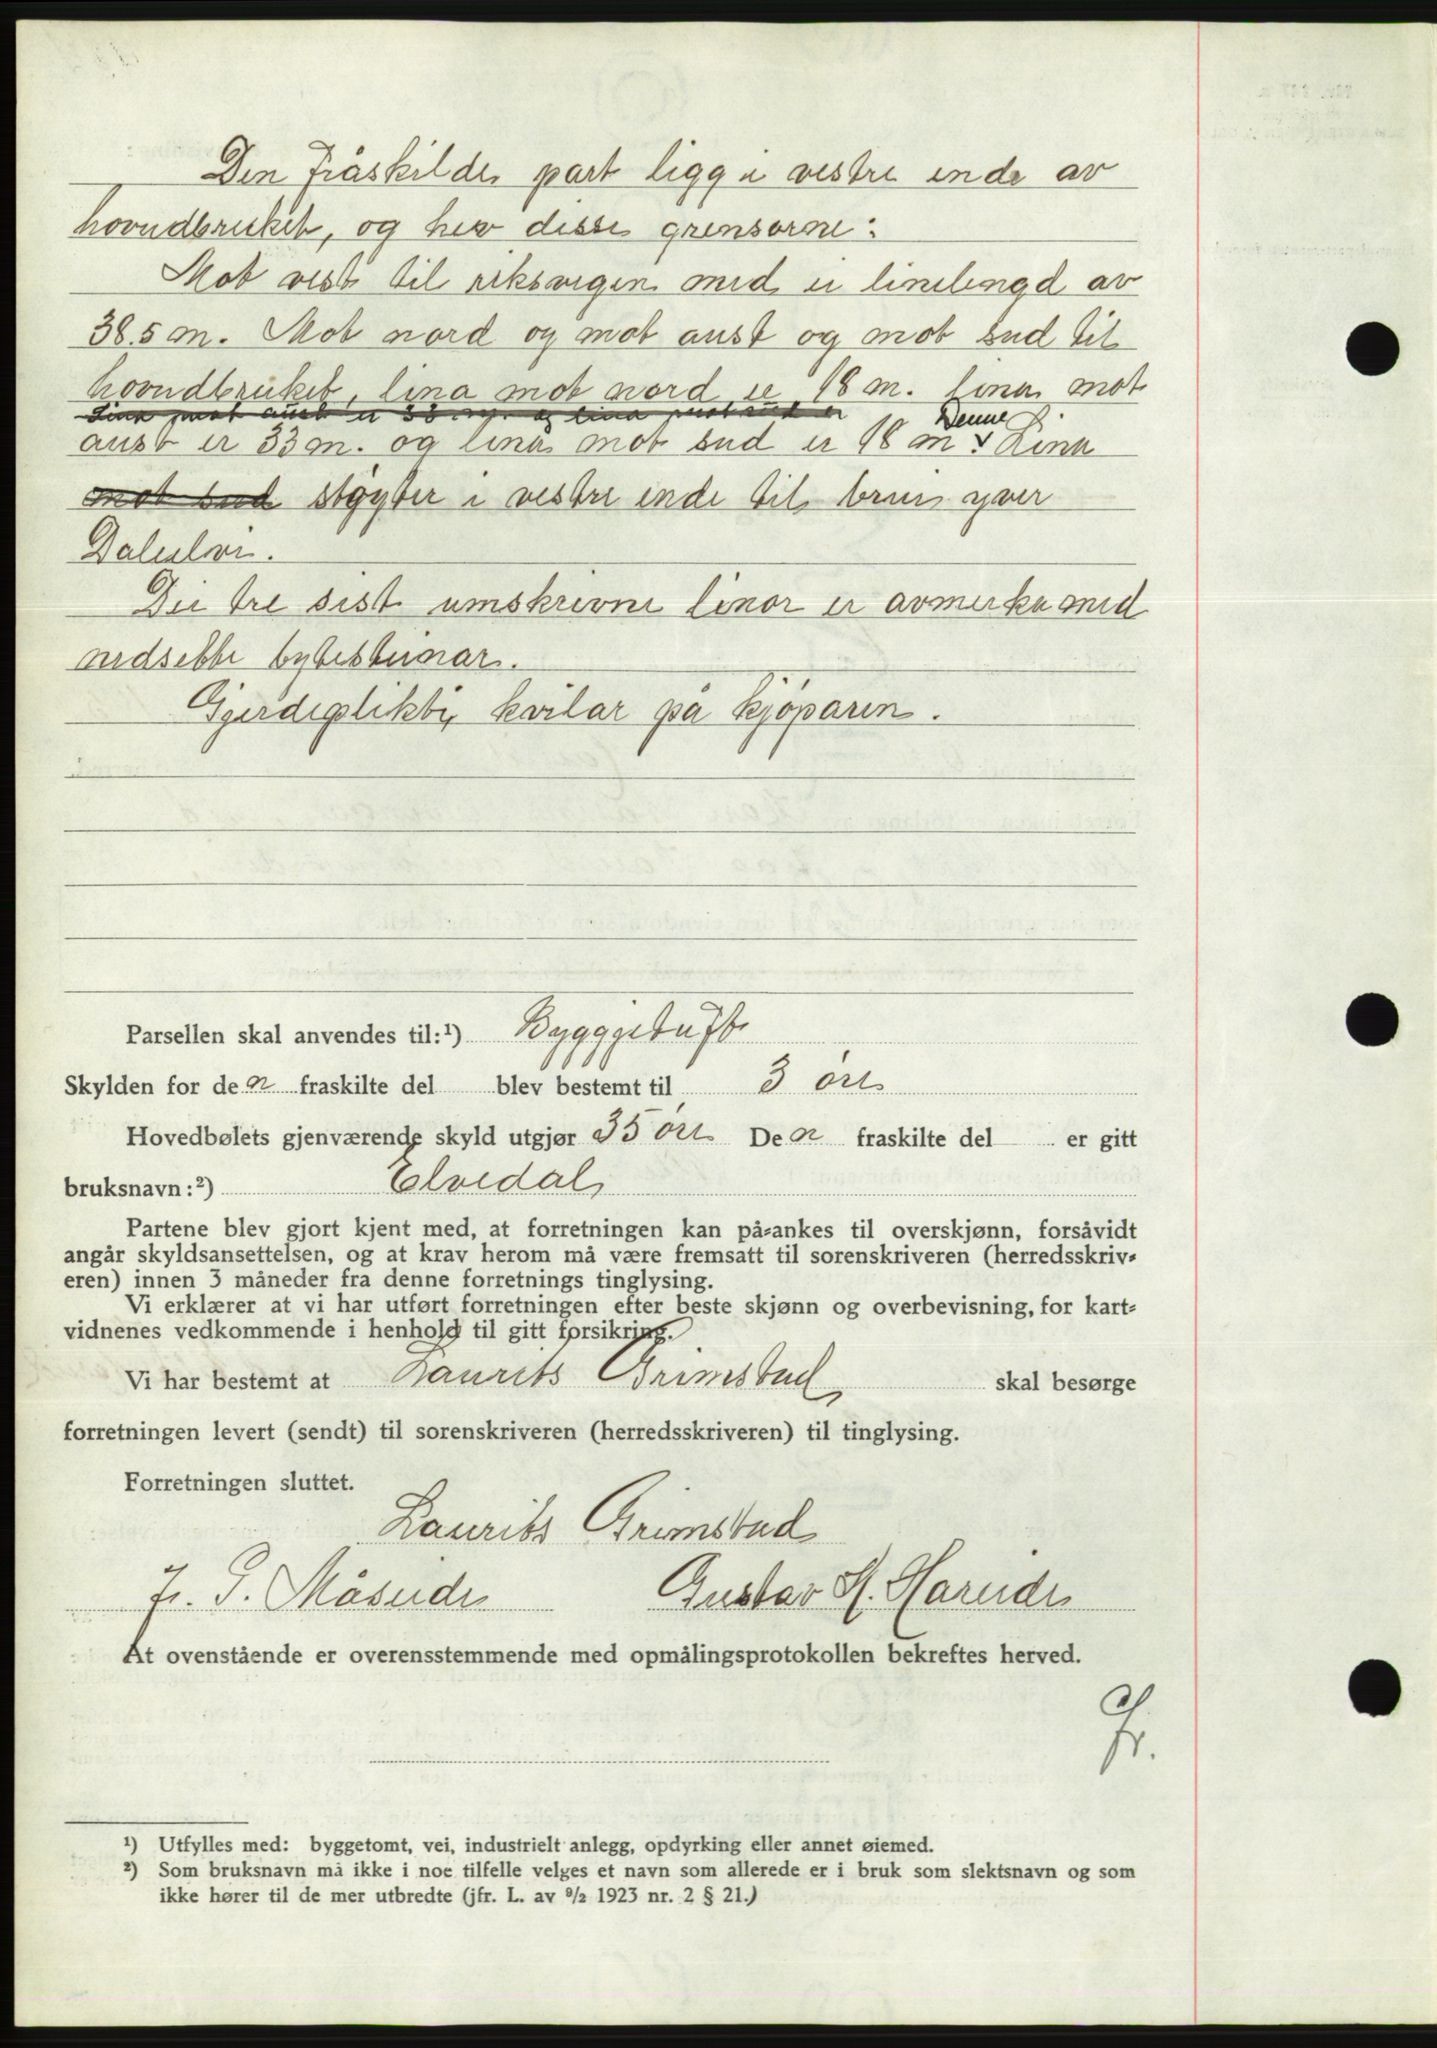 Den fråskilde part ligg i vestre ende av
hovudbruket, og hev disse grensorne:
Mot vest til riksvegen med ei linelengd av
38.5 m. Mot nord og mot aust og mot sud til
hovudbruket, lina mot nord er 18 m. lina mot
Lina mot aust er 33 m. og lina mot sud er
aust er 33 m. og lina mot sud er 18 m. Denne Lina
mot sud støyter i vestre ende til brui yver
Dalelvi.
Dei tre sist umskrivne linor er avmerka med
nedsette bytesteinar.
Gjerdeplikti kvilar på kjøparen.
Parsellen skal anvendes til:¹) Byggjetuft
Skylden for den fraskilte del blev bestemt til 3 øre
Hovedbølets gjenværende skyld utgjør 35 øre Den fraskilte del er gitt
bruksnavn:²) Elvedal
Partene blev gjort kjent med, at forretningen kan på-ankes til overskjønn, forsåvidt
angår skyldsansettelsen, og at krav herom må være fremsatt til sorenskriveren (herredsskriv-
eren) innen 3 måneder fra denne forretnings tinglysing.
Vi erklærer at vi har utført forretningen efter beste skjønn og overbevisning, for kart-
vidnenes vedkommende i henhold til gitt forsikring.
Vi har bestemt at Laurits Grimstad skal besørge
forretningen levert (sendt) til sorenskriveren (herredsskriveren) til tinglysing.
Forretningen sluttet.
Laurits Grimstad
J. G. Måseide Gustav H. Hareide
At ovenstående er overensstemmende med opmålingsprotokollen bekreftes herved.
¹) Utfylles med: byggetomt, vei, industrielt anlegg, opdyrking eller annet øiemed.
²) Som bruksnavn må ikke i noe tilfelle velges et navn som allerede er i bruk som slektsnavn og som
ikke hører til de mer utbredte (jfr. L. av ⁹/₂ 1923 nr. 2 § 21.)